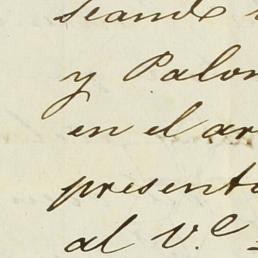 seando
y Palom
en el ar
presenta
al V.e